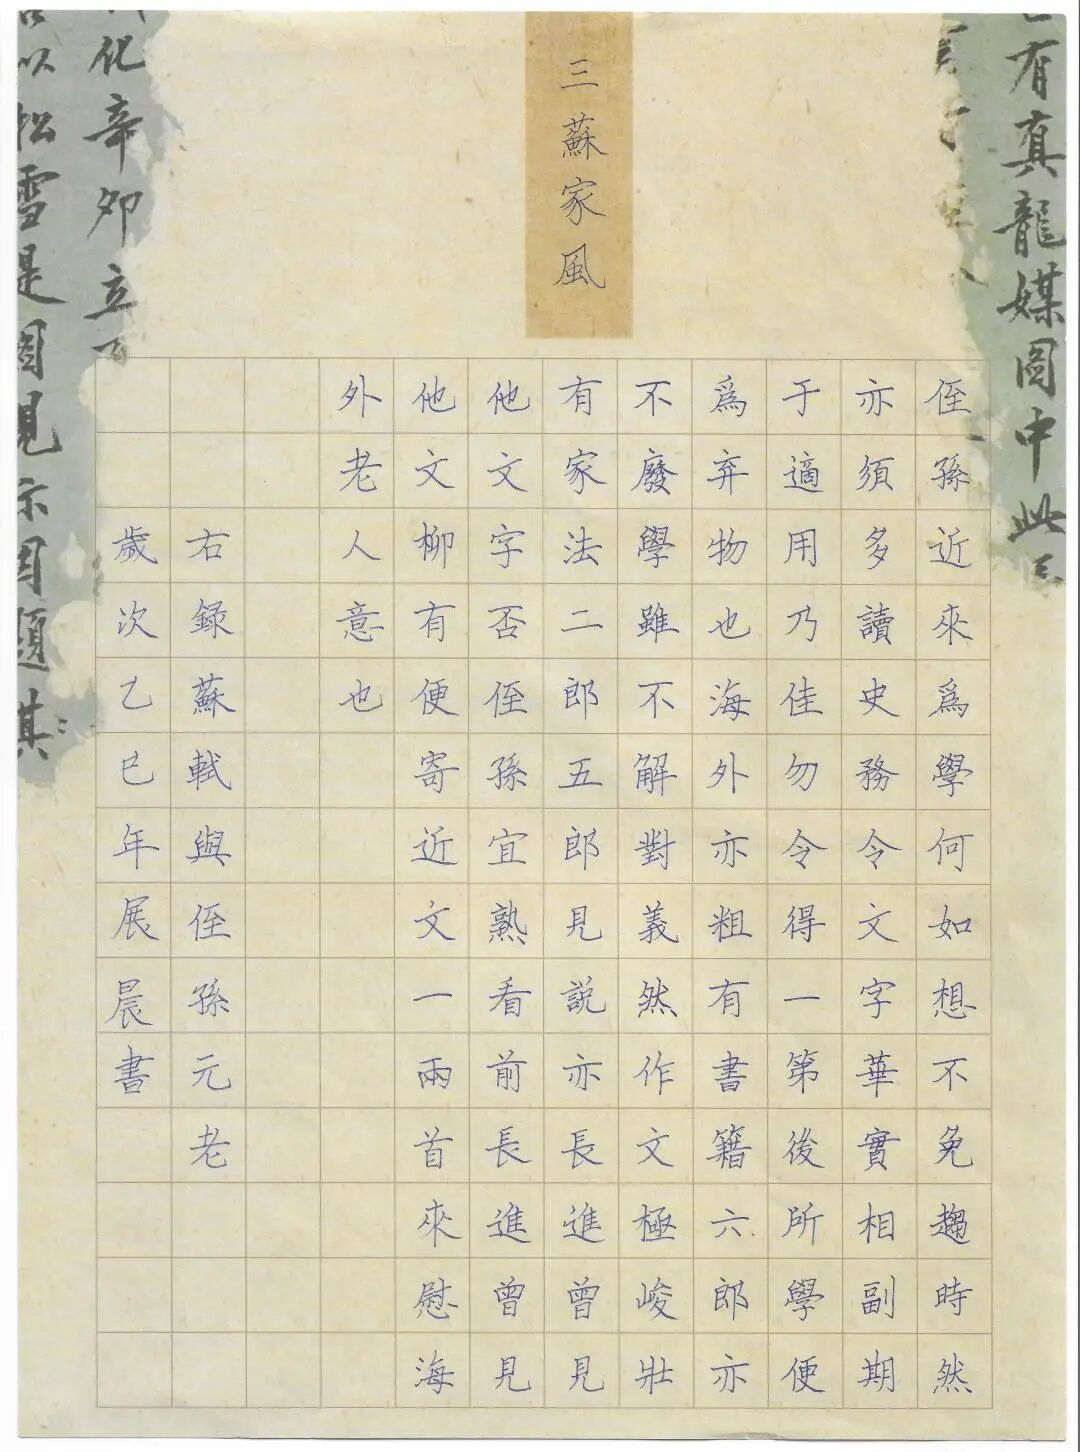 三蘇家風
侄孫近來爲學何如想不免趨時然
亦須多讀史務令文字華實相副期
于適用乃佳勿令得一第後所學便
爲弃物也海外亦粗有書籍六郎亦
不廢學雖不解對義然作文極峻壯
有家法二郎五郎見說亦長進曾見
他文字否侄孫宜熟看前長進曾見
他文柳有便寄近文一兩首來慰海
外老人意也
右録蘇軾與侄孫元老
歲次乙巳年展晨書
有真龍媒圖中此
化辛卯立
以松雪是圖見示因題其